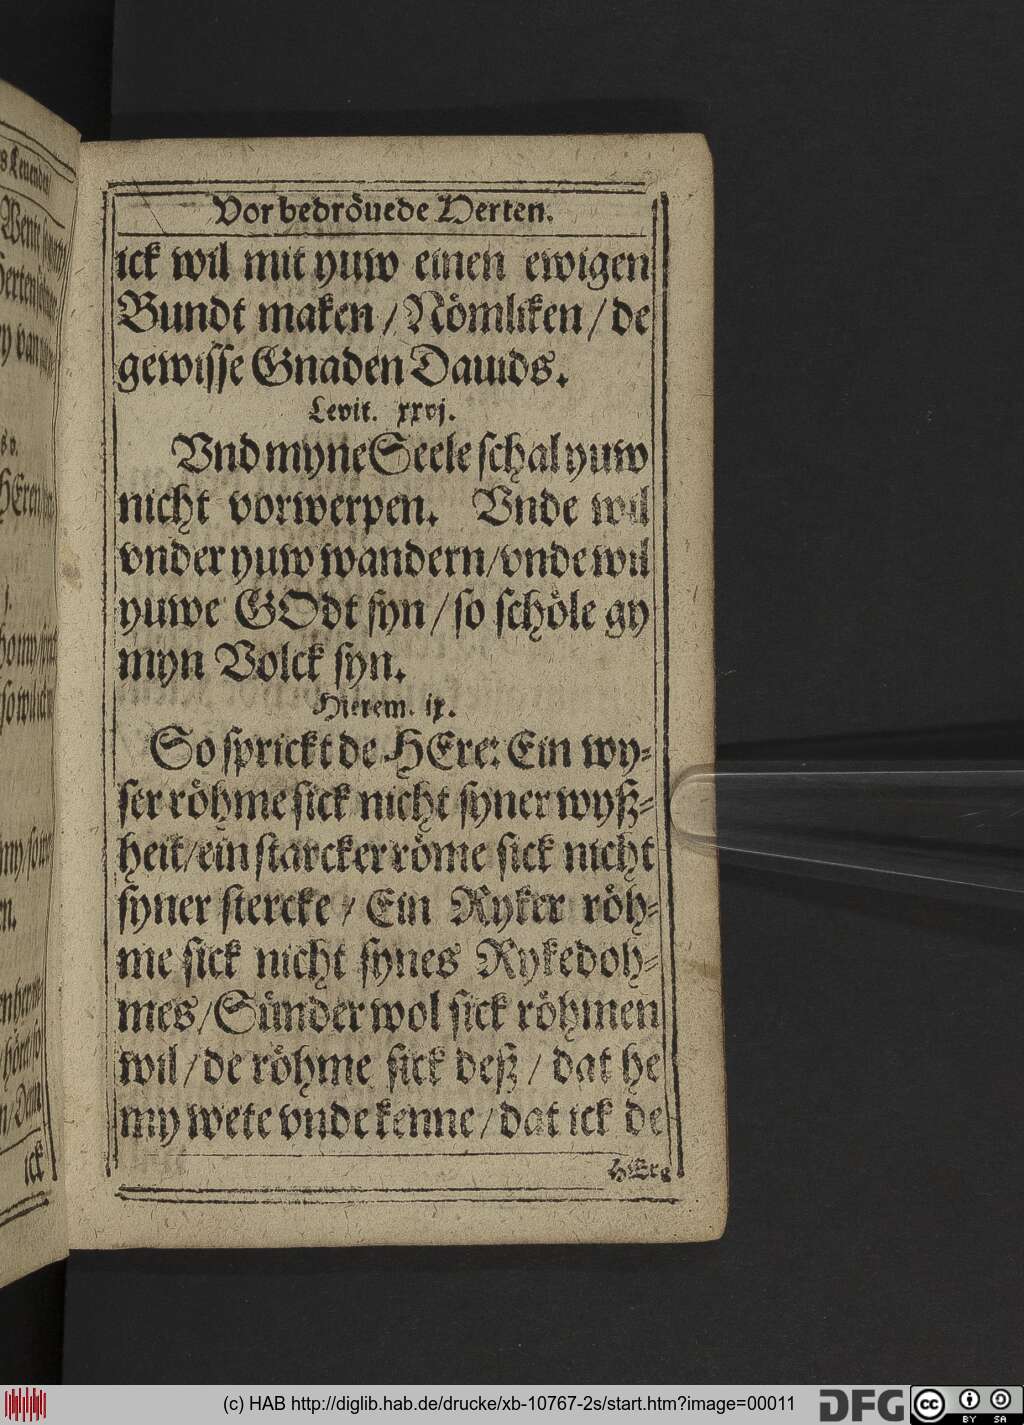 Vor bedröuede Herten.
ick wil mit yuw einen ewigen
Bundt maken / Nömliken / de
gewisse Gnaden Dauids.
Levit. xxvj.
Vnd myne Seele schal yuw
nicht vorwerpen. Vnde wil
vnder yuw wandern / vnde wil
yuwe GOdt syn / so schöle gy
myn Volck syn.
Hierem. ix.
So sprickt de HEre: Ein wy-
ser röhme sick nicht syner wyß-
heit / ein starcker röme sick nicht
syner stercke / Ein Ryker röh-
me sick nicht synes Rykedoh-
mes / Sünder wol sick röhmen
wil / de röhme sick deß / dat he
my wete vnde kenne / dat ick de
HEre
ick
(c) HAB http://diglib.hab.de/drucke/xb-10767-2s/start.htm?image=00011
DFG
cc
BY SA